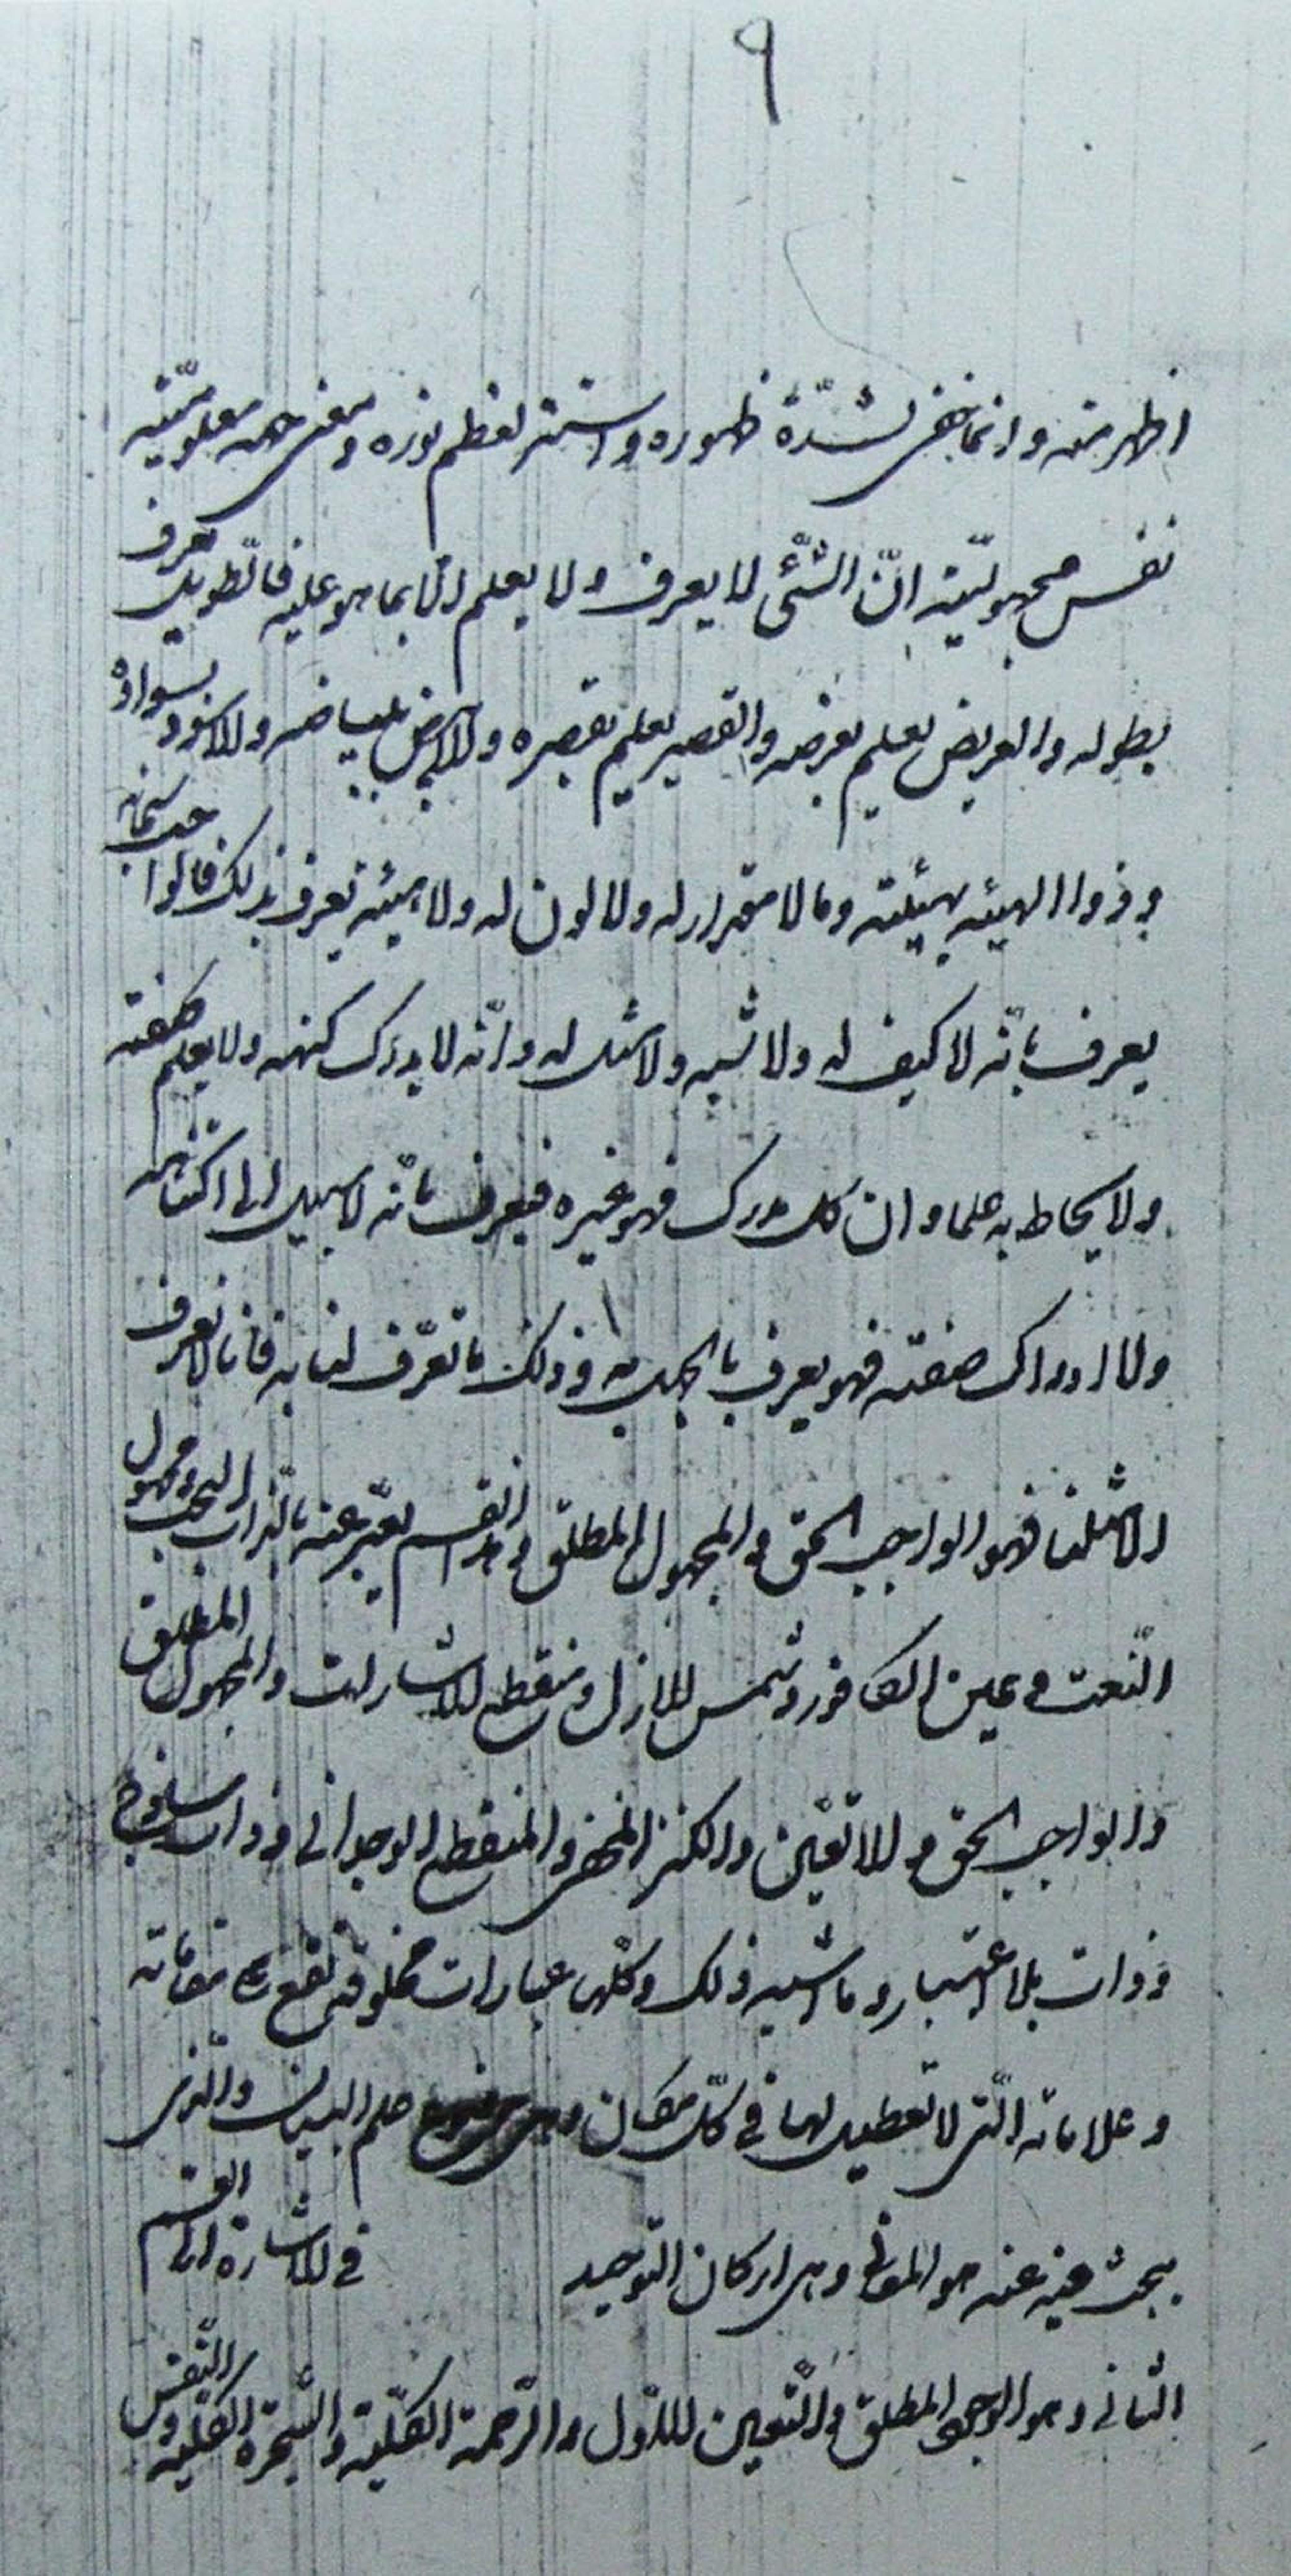 ٩
اظهر منه وانما خفى لشدّة ظهوره واستتر لعظم نوره ومعنى جهة معلوميّته
نفس مجهوليّته انّ الشّئ لا يعرف ولا يعلم الّا بما هو عليه فالطّويل يعرف
بطوله والعريض يعلم بعرضه والقصير يعلم بقصره والابيض ببياضه والاسود بسواده
وذوا الهيئه بهيئته وما لا مقدار له ولا لون له ولا هيئة يعرف بذلك فالواجب سبحانه
يعرف بانّه لا كيف له ولا شبه ولا مثل له وانّه لا يدرك كنهه ولا يعلم صفته
ولا يحاط به علما وان كل مدرك فهو غيره فيعرف بانّه لا سبيل الى اكتناهه
ولا ادراك صفته فهو يعرف بالجهل به وذلك ما تعرّف لنا به فانا لا نعرف
الا مثلنا فهو الواجب الحق والمجهول المطلق وهذا القسم يعبّر عنه بالذات البحت ومجهول
النّعت وعين الكافور وشمس الازل ومنقطع الاشارات والمجهول المطلق
والواجب الحق واللا تعيّن والكنز المخفى والمنقطع الوجدانى وذات ساذج
وذات بلا اعتبار وما اشبه ذلك وكلّها عبارات مخلوقة تقع على مقاماته
وعلاماته الّتى لا تعطيل لها فى كلّ مكان علم البيان والّذى
يبحث فيه عنه هو المعانى وهى اركان التّوحيد فى الاشارة الى القسم
الثانى وهو الوجود المطلق والتّعين الاوّل والرّحمة الكلّية والشّجرة الكلّية والنّفس